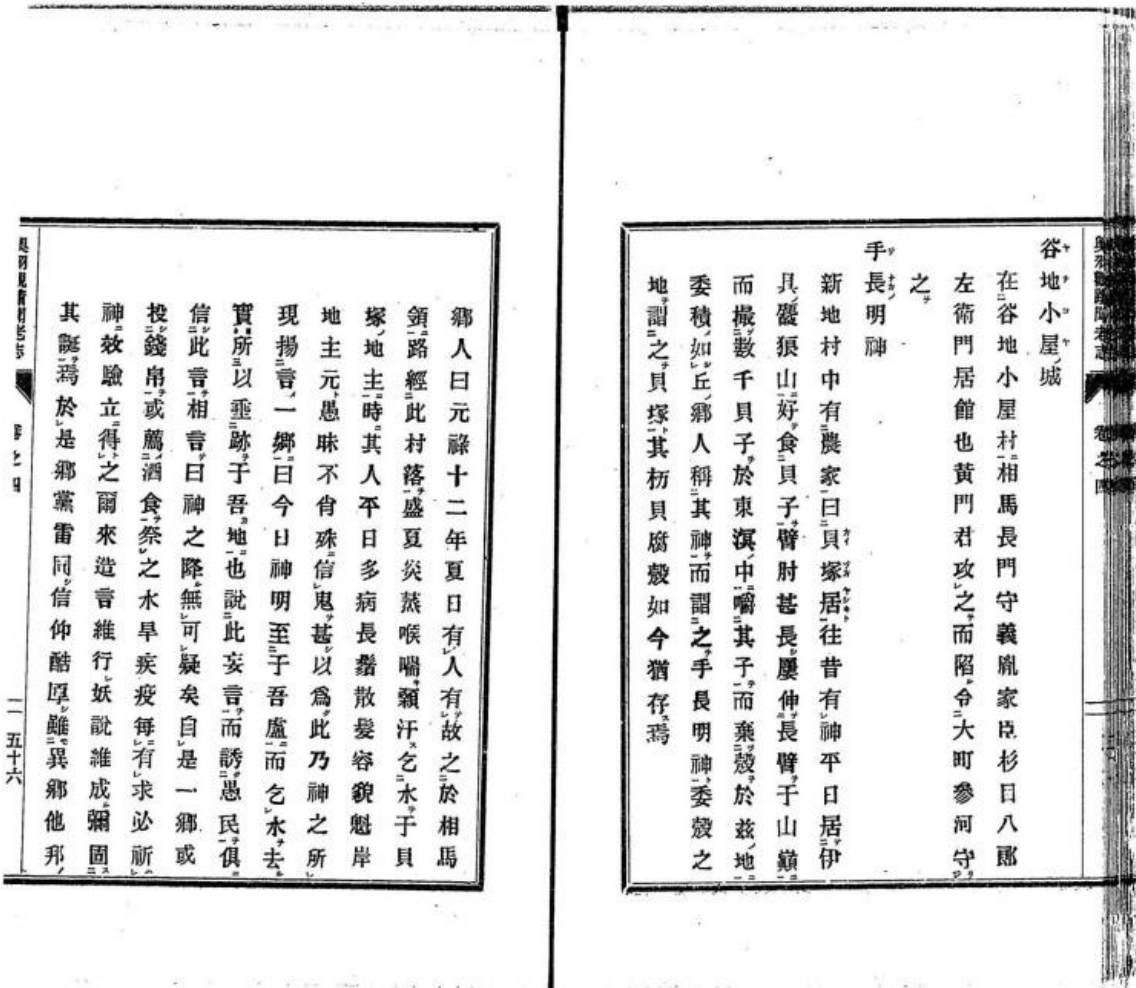 谷地小屋城
在谷地小屋村相馬長門守義胤家臣杉目八郎
左衛門居館也黄門君攻之而陷令大町參河守
之
手長明神
新地村中有農家曰貝塚居往昔有神平日居伊
具鹿狼山好食貝子臂肘甚長屢伸長臂于山巓
而撮數千貝子於東溟中嚼其子而棄殼於茲地
委積如丘鄕人稱其神而謂之手長明神委殼之
地謂之貝塚其朽貝腐殼如今猶存焉
鄕人曰元祿十二年夏日有人有故之於相馬
領路經此村落盛夏炎蒸喉喘顙汗乞水于貝
塚地主時其人平日多病長鬚散髮容貌魁岸
地主元愚昧不肖殊信鬼甚以爲此乃神之所
現揚言一鄕曰今日神明至于吾廬而乞水去
實所以垂跡于吾地也説此妄言而誘愚民俱
信此言相言曰神之降無可疑矣自是一鄕或
投錢帛或薦酒食祭之水旱疾疫每有求必祈
神效驗立得之爾來造言維行妖説維成彌固
其誕焉於是鄕黨雷同信仰酷厚雖異鄕他邦
卷之四
二 五十六